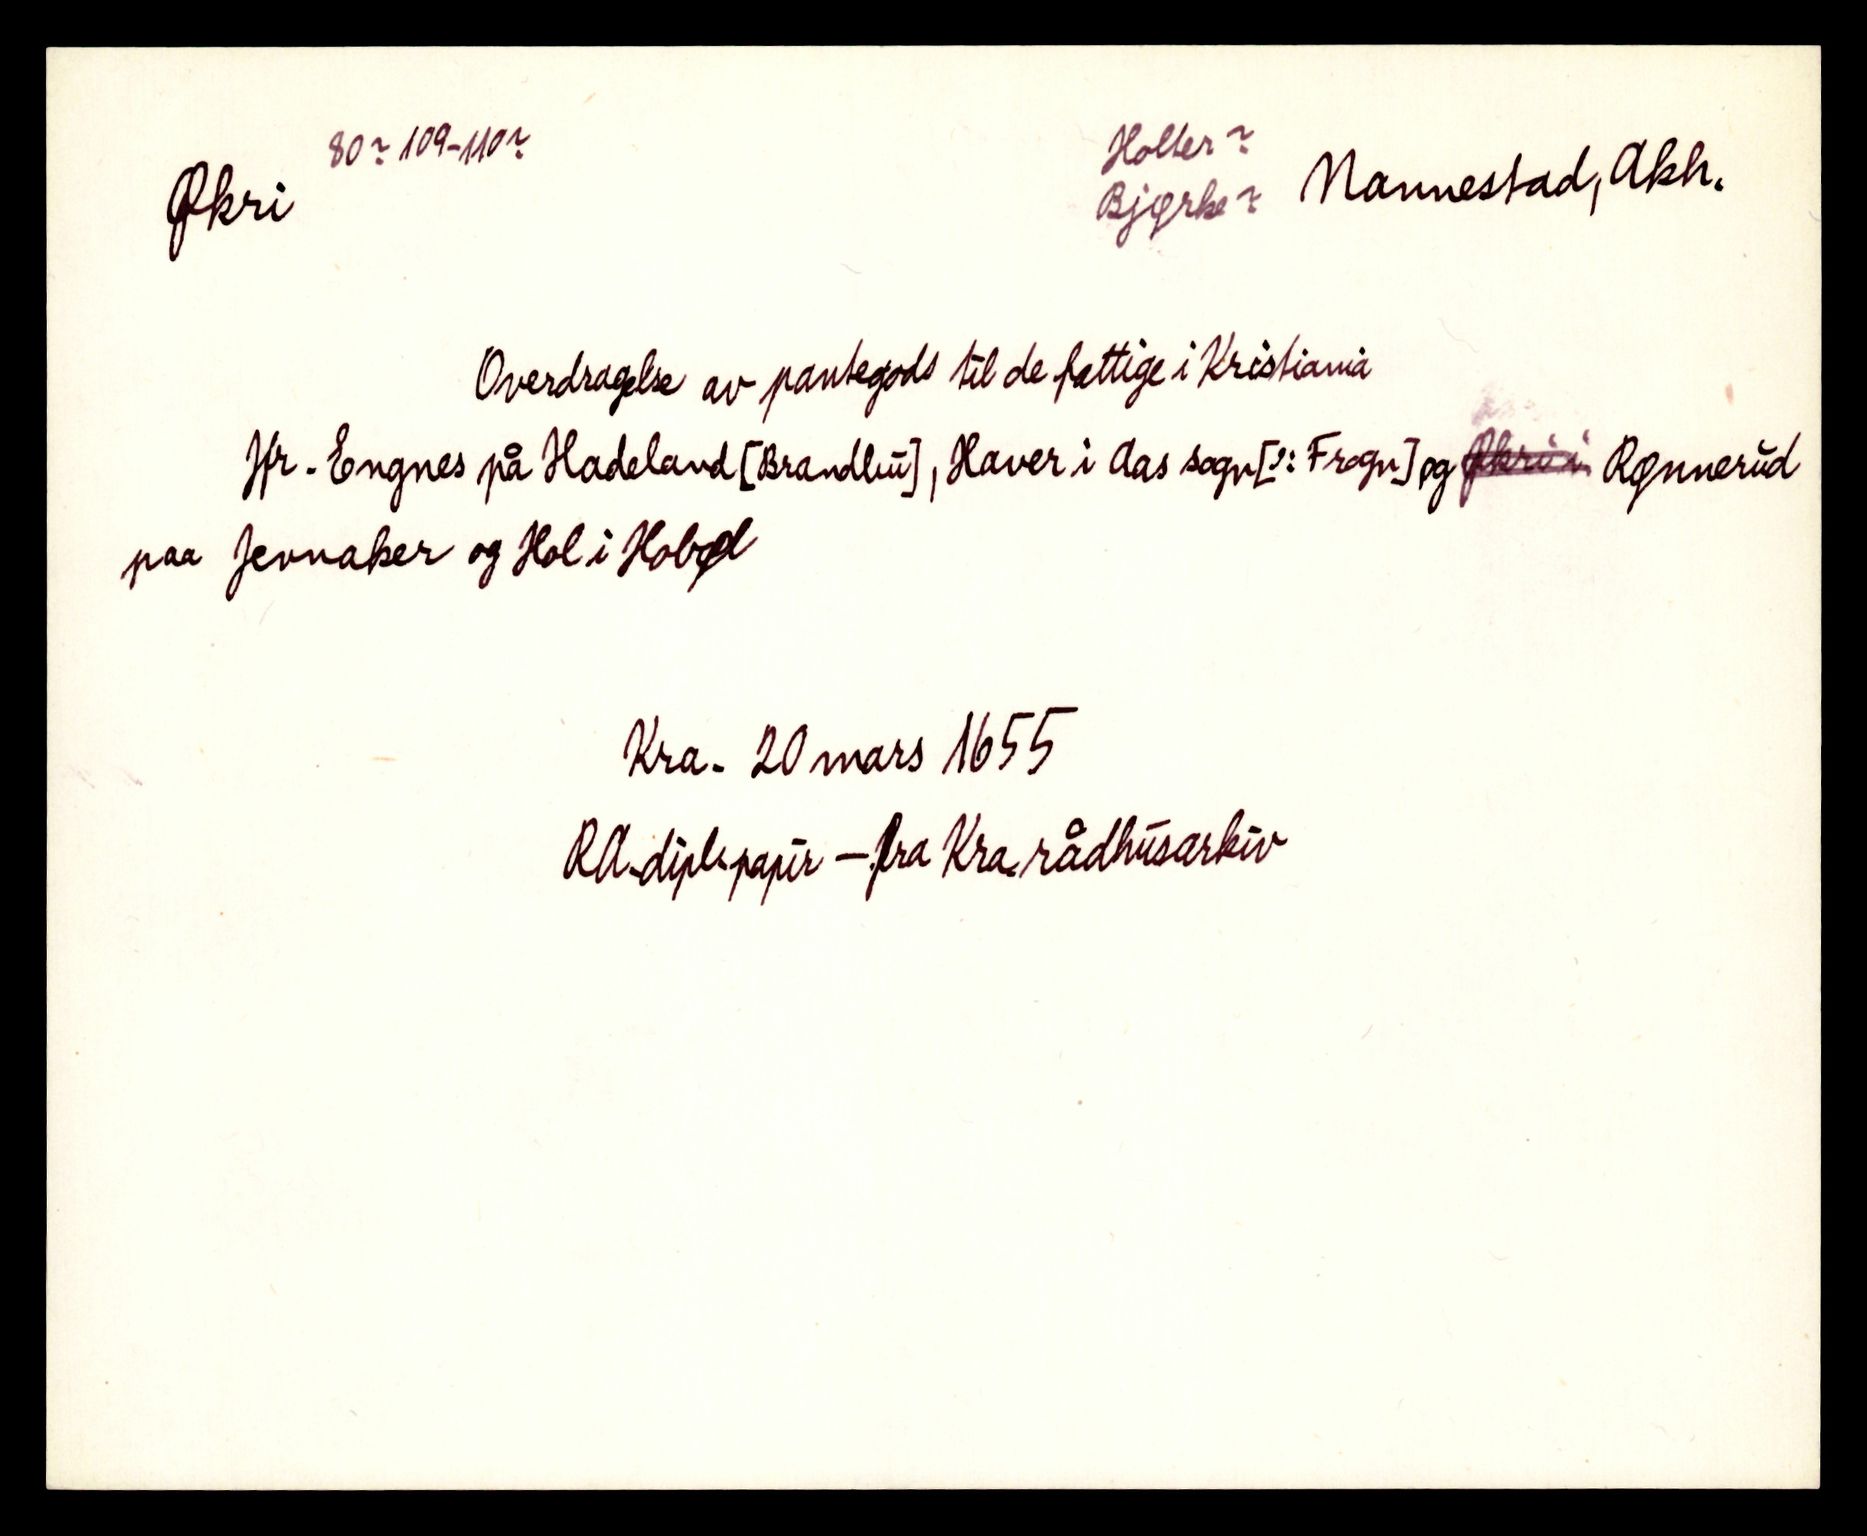 Økri 80 ~ 109-110 ~
Holter ~
Bjørke ~
Nannestad, Akh.
Overdragelse av pantegods til de fattige i Kristiania
Jfr. Engnes på Hadeland [Brandbu], Haver i Aas sogn [ɔ: Frogn] og Økri i Rønnerud
paa Jevnaker og Hol i Hobøl
Kra. 20 mars 1655
RA. dipl. papir – fra Kra. rådhusarkiv